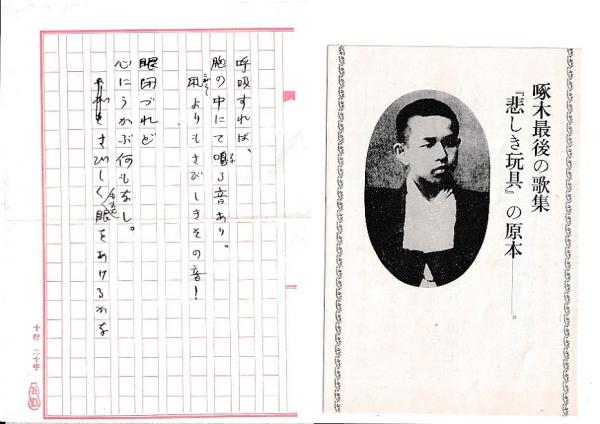 啄木最後の歌集
『悲しき玩具』の原本――。
呼吸すれば、
胸の中にて鳴る音あり。
凩よりもさびしきその音!
眼閉づれど
心にうかぶ何もなし。
さびしく眼をあけるかな
十行 二十字